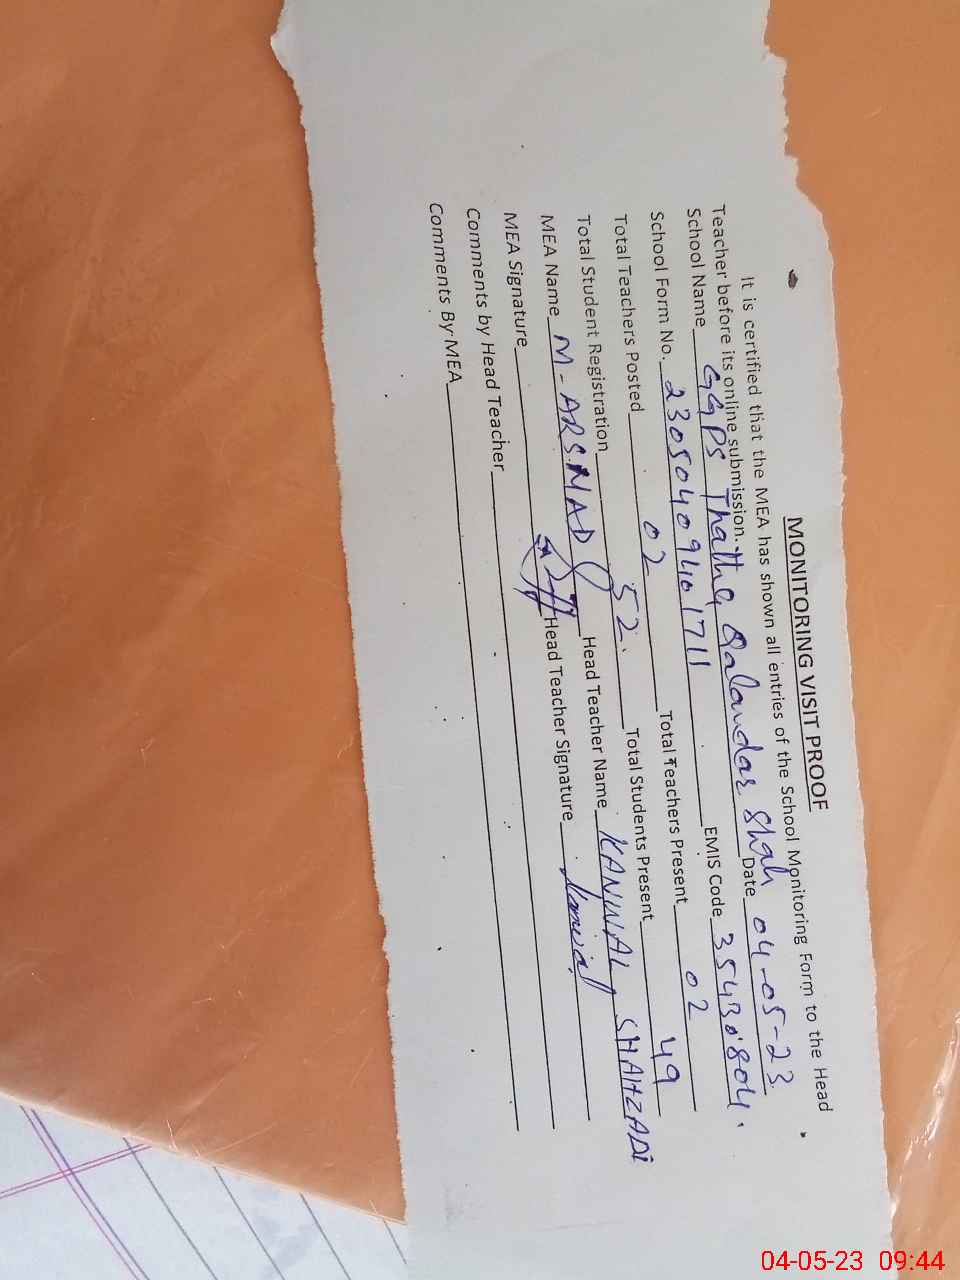 MONITORING VISIT PROOF
It is certified that the MEA has shown all entries of the School Monitoring Form to the Head
Teacher before its online submission.
School Name GGPS Thatha Qalandar Shah Date 04-05-23
School Form No. 23050409401711 EMIS Code 35430804.
Total Teachers Posted 02 Total Teachers Present 02
Total Student Registration 52. Total Students Present 49
MEA Name M-ARSHAD Head Teacher Name KANWAL SHAHZADi
MEA Signature Head Teacher Signature Kanwal
Comments by Head Teacher
Comments By MEA
04-05-23 09:44